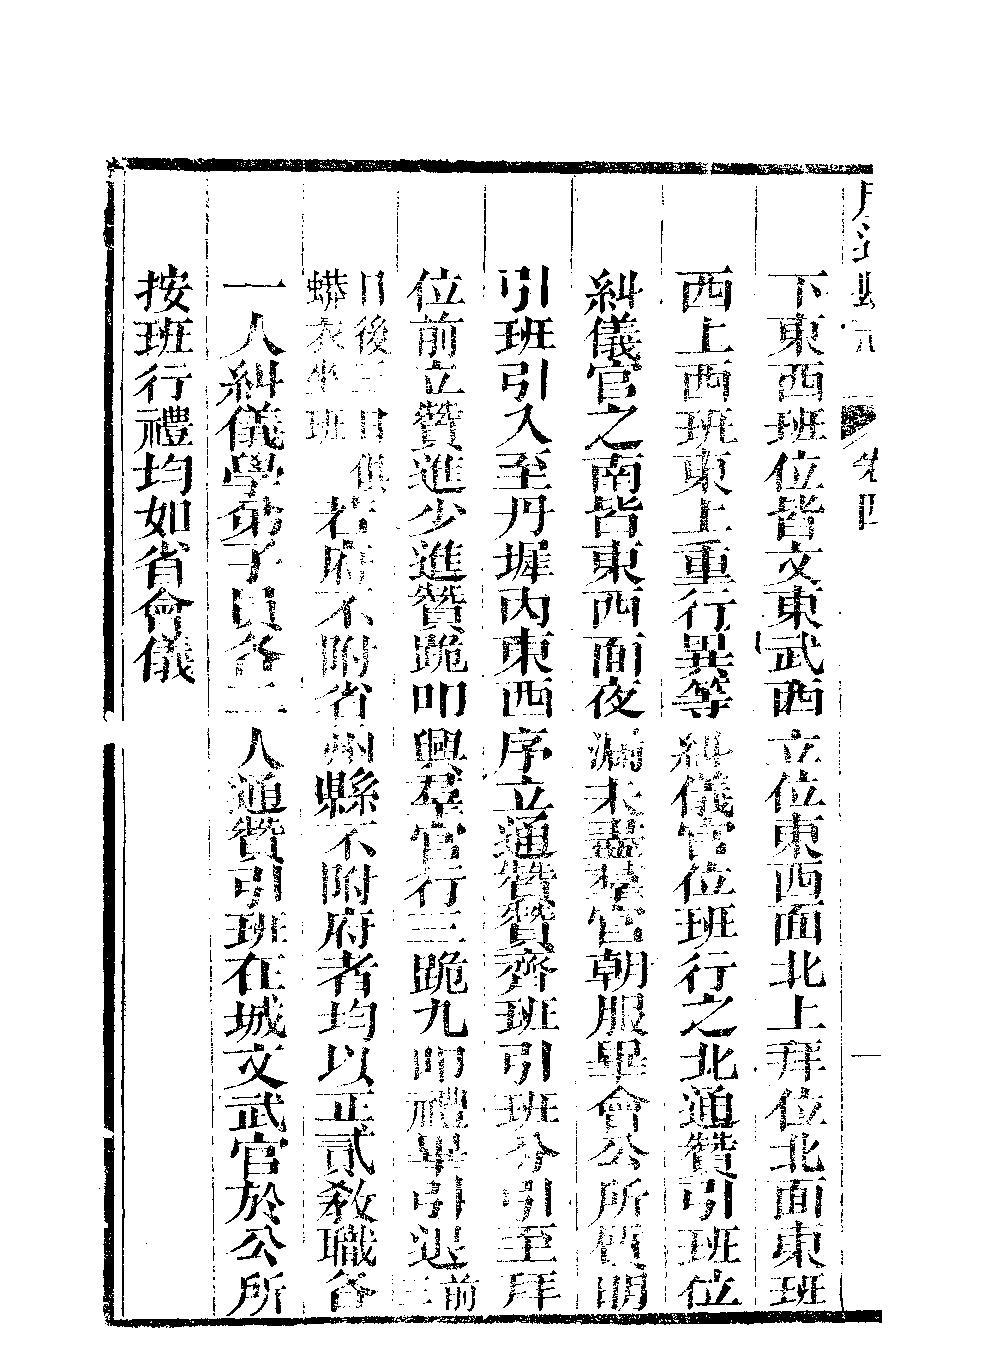 下東西班位皆文東武西立位東西面北上拜位北面東班
西上西班東上重行異等糾儀官位班行之北通贊引班位
糾儀官之南皆東西面夜漏未盡羣官朝服畢會公所質明
引班引入至丹墀內東西序立通贊贊齊班引班分引至拜
位前立贊進少進贊跪叩興羣官行三跪九叩禮畢引退前三
日後三日俱蟒衣坐班若府不附省州縣不附府者均以正貳教職各
一人糾儀學弟子員各二人通贊引班在城文武官於公所
按班行禮均如省會儀